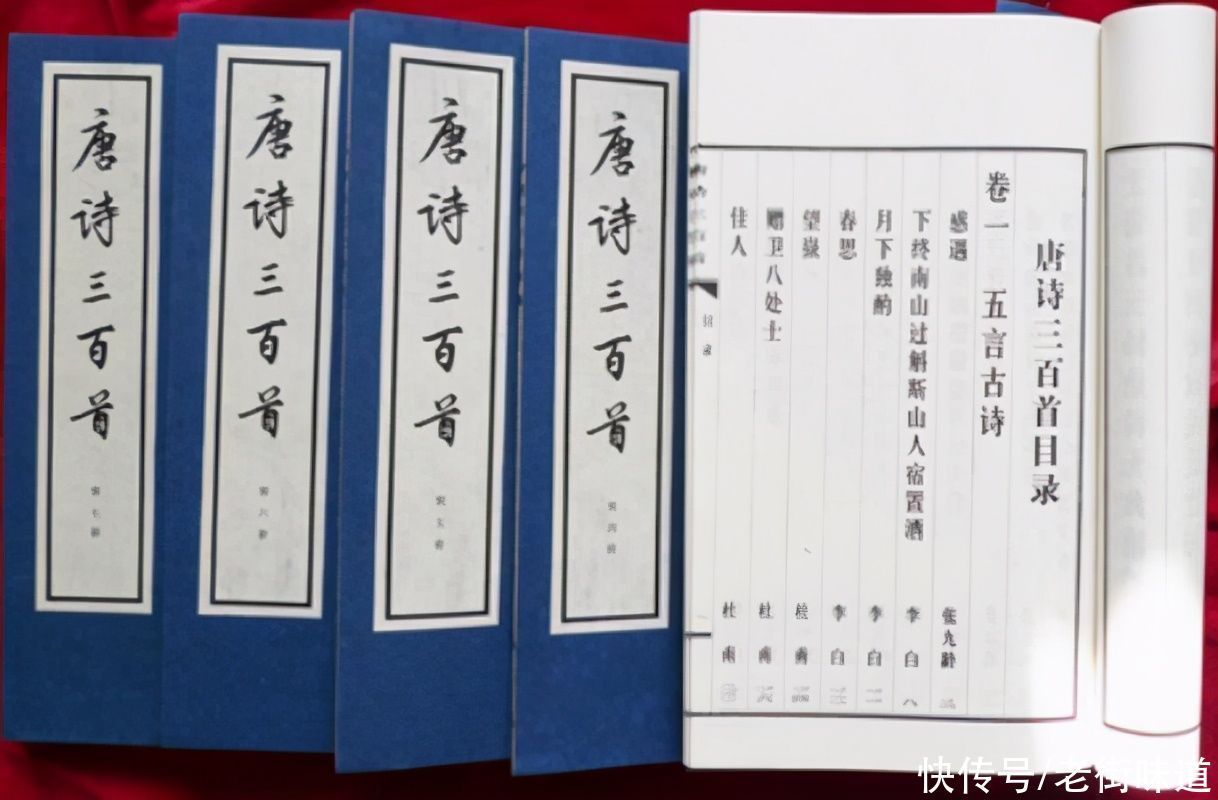 唐诗三百首
唐诗三百首
唐诗三百首
唐诗三百首
唐诗三百首目录
卷一 五言古诗
感遇 张九龄
下终南山过斛斯山人宿置酒 李白 八
月下独酌 李白
春思 李白
望嶽 杜甫
赠卫八处士 杜甫
佳人 杜甫
快传号/老街味道